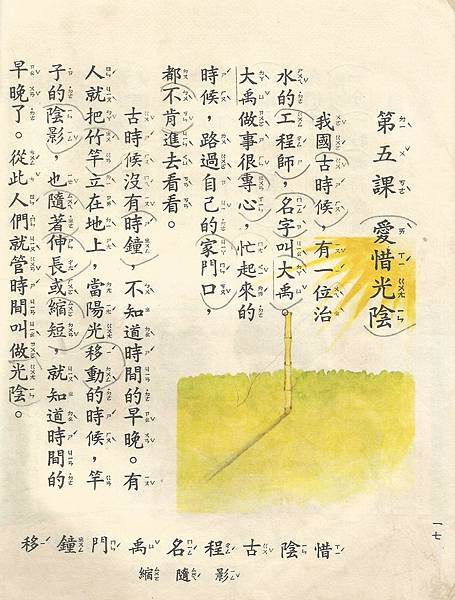 第五課　愛惜光陰
我國古時候，有一位治
水的工程師，名字叫大禹。
大禹做事很專心，忙起來的
時候，路過自己的家門口，
都不肯進去看看。
古時候沒有時鐘，不知道時間的早晚。有
人就把竹竿立在地上，當陽光移動的時候，竿
子的陰影，也隨著伸長或縮短，就知道時間的
早晚了。從此人們就管時間叫做光陰。
一七
惜陰古程名禹門鐘移
影隨縮